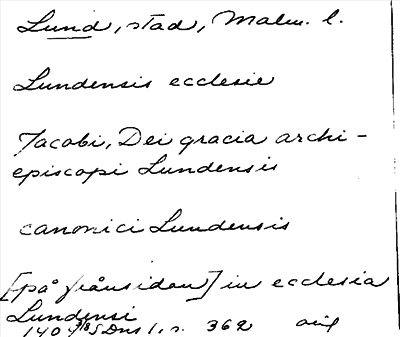 Lund, stad, Malm. l.
Lundensis ecclesie
Jacobi, Dei gracia archi-
episcopi Lundensis
canonici Lundensis
[på frånsidan] in ecclesia
Lundensi
140 SDns 1, s. 362